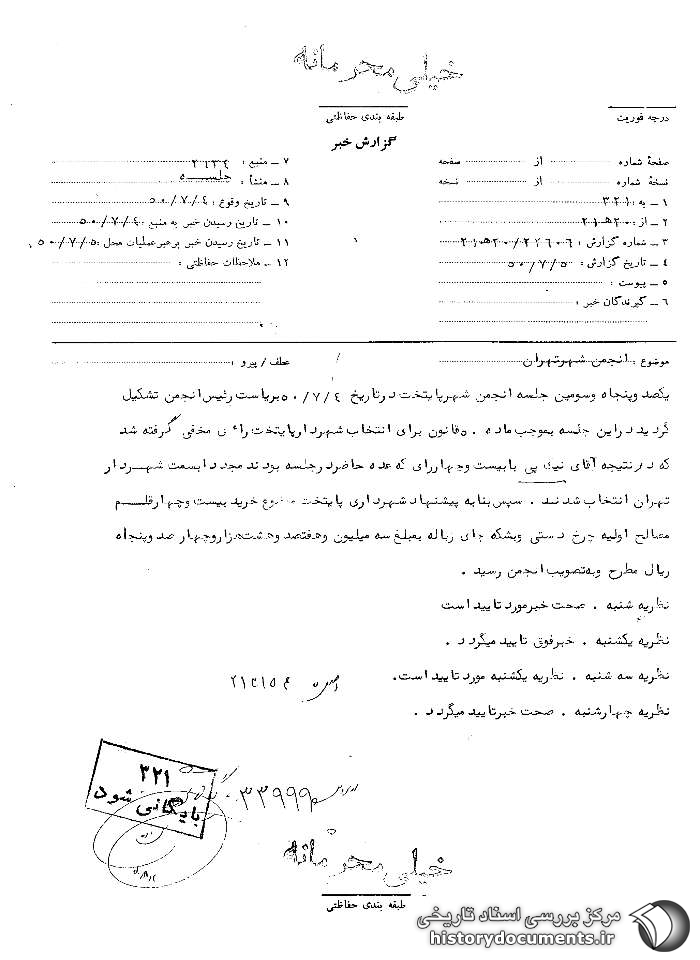 خیلی محرمانه
درجه فوریت
طبقه بندی حفاظتی
گزارش خبر
صفحهٔ شماره از صفحه
نسخهٔ شماره از نسخه
۱ ـ به : ۳۲۱
۲ ـ از : ۲۰ﻫ۲۱
۳ ـ شماره گزارش : ۲۱ﻫ۲۰/۲۲۶۰۶
۴ ـ تاریخ گزارش : ۵۰/۷/۵
۵ ـ پیوست :
۶ ـ گیرندگان خبر :
۷ ـ منبع :
۸ ـ منشأ : جلسه
۹ ـ تاریخ وقوع : ۵۰/۷/۴
۱۰ ـ تاریخ رسیدن خبر به منبع : ۵۰/۷/۴
۱۱ ـ تاریخ رسیدن خبر برهبر عملیات محل : ۵۰/۷/۵
۱۲ ـ ملاحظات حفاظتی :
موضوع : انجمن شهر تهران
عطف / پیرو :
یکصد وپنجاه وسومین جلسه انجمن شهرپایتخت در تاریخ ۵۰/۷/۴ بریاست رئیس انجمن تشکیل
گردید در این جلسه بموجب ماده ۵۰ قانون برای انتخاب شهردارپایتخت رأی مخفی گرفته شد
که در نتیجه آقای نیک پی با بیست وچهاررای که عده حاضر در جلسه بودند مجددا بسمت شهردار
تهران انتخاب شدند . سپس بنا به پیشنهاد شهرداری پایتخت موضوع خرید بیست وچهارقلم
مصالح اولیه چرخ دستی وبشکه جای زباله بمبلغ سه میلیون وهفتصد وهشت هزاروچهار صد وپنجاه
ریال مطرح وبه تصویب انجمن رسید .
نظریه شنبه . صحت خبرمورد تایید است
نظریه یکشنبه . خبرفوق تایید میگردد .
نظریه سه شنبه . نظریه یکشنبه مورد تایید است .
نظریه چهارشنبه . صحت خبرتایید میگردد .
۳۲۱
بایگانی شود
۳۳۹۹۹
خیلی محرمانه
طبقه بندی حفاظتی
مرکز بررسی اسناد تاریخی
historydocuments.ir